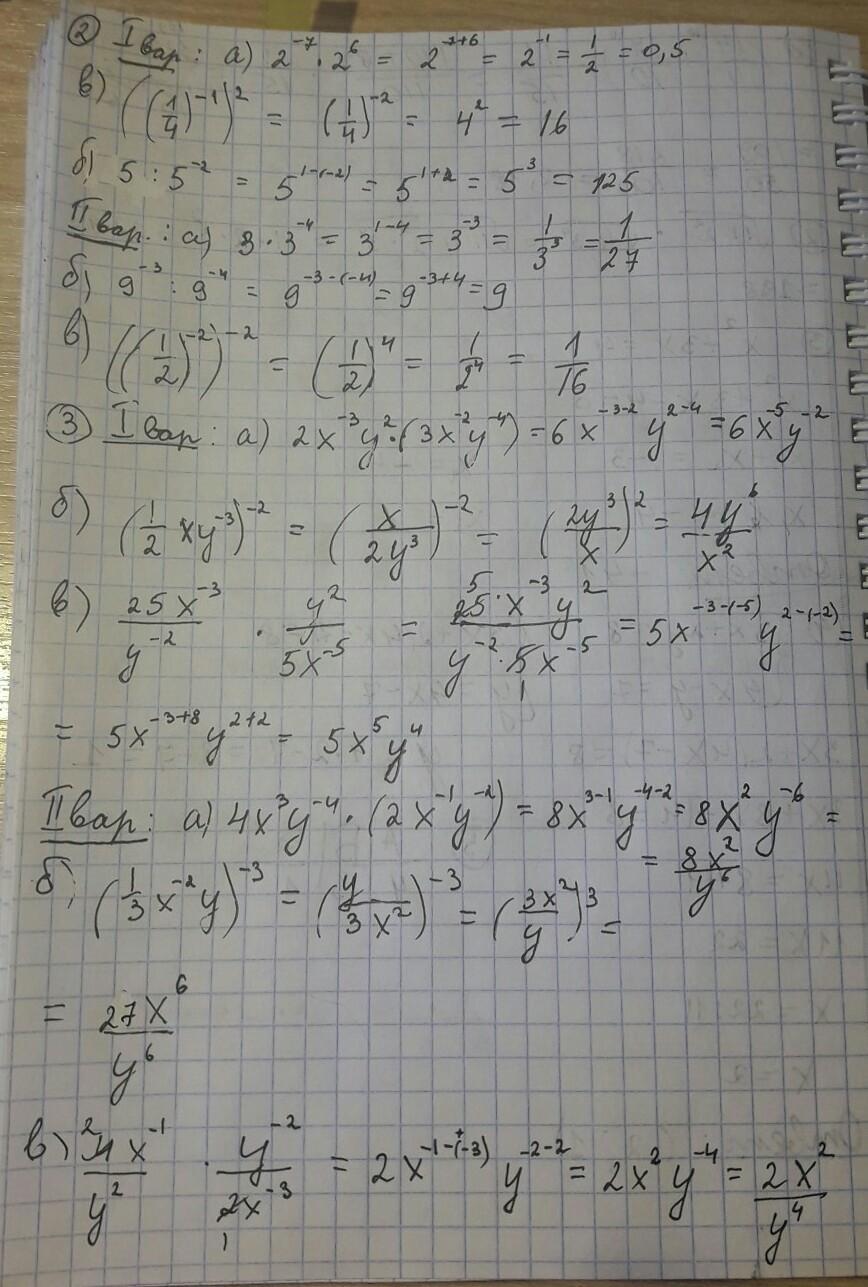 ② I вар: а) 2⁻⁷ · 2⁶ = 2⁻⁷⁺⁶ = 2⁻¹ = 1/2 = 0,5
в) ((1/4)⁻¹)² = (1/4)⁻² = 4² = 16
б) 5 : 5⁻² = 5¹⁻⁽⁻²⁾ = 5¹⁺² = 5³ = 125
II вар.: а) 3 · 3⁻⁴ = 3¹⁻⁴ = 3⁻³ = 1/3³ = 1/27
б) 9⁻³ : 9⁻⁴ = 9⁻³⁻⁽⁻⁴⁾ = 9⁻³⁺⁴ = 9
в) ((1/2)⁻²)⁻² = (1/2)⁴ = 1/2⁴ = 1/16
③ I вар: а) 2x⁻³y² · (3x⁻²y⁻⁴) = 6x⁻³⁻² y²⁻⁴ = 6x⁻⁵y⁻²
б) (1/2 xy⁻³)⁻² = (x/2y³)⁻² = (2y³/x)² = 4y⁶/x²
в) 25x⁻³/y⁻² · y²/5x⁻⁵ = 25 · x⁻³y²/y⁻² · 5x⁻⁵ = 5x⁻³⁻⁽⁻⁵⁾ y²⁻⁽⁻²⁾ =
= 5x⁻³⁺⁸ y²⁺² = 5x⁵y⁴
II вар: а) 4x³y⁻⁴ · (2x⁻¹y⁻²) = 8x³⁻¹y⁻⁴⁻² = 8x² y⁻⁶ =
= 8x²/y⁶
б) (1/3 x⁻² y)⁻³ = (y/3x²)⁻³ = (3x²/y)³ =
= 27x⁶/y⁶
в) 4x⁻¹/y² · y⁻²/2x⁻³ = 2x⁻¹⁻⁽⁻³⁾ y⁻²⁻² = 2x² y⁻⁴ = 2x²/y⁴